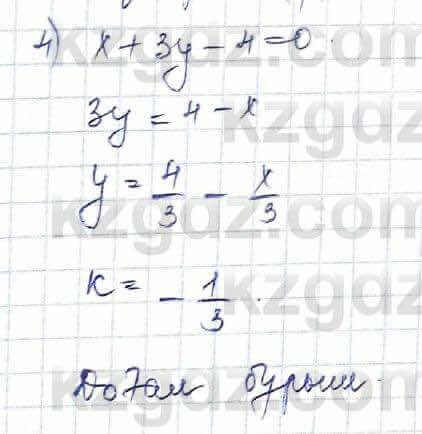 4) x + 3y - 4 = 0.
3y = 4 - x
y = 4/3 - x/3
K = - 1/3.
Доғал бұрыш.
kzgdz.com